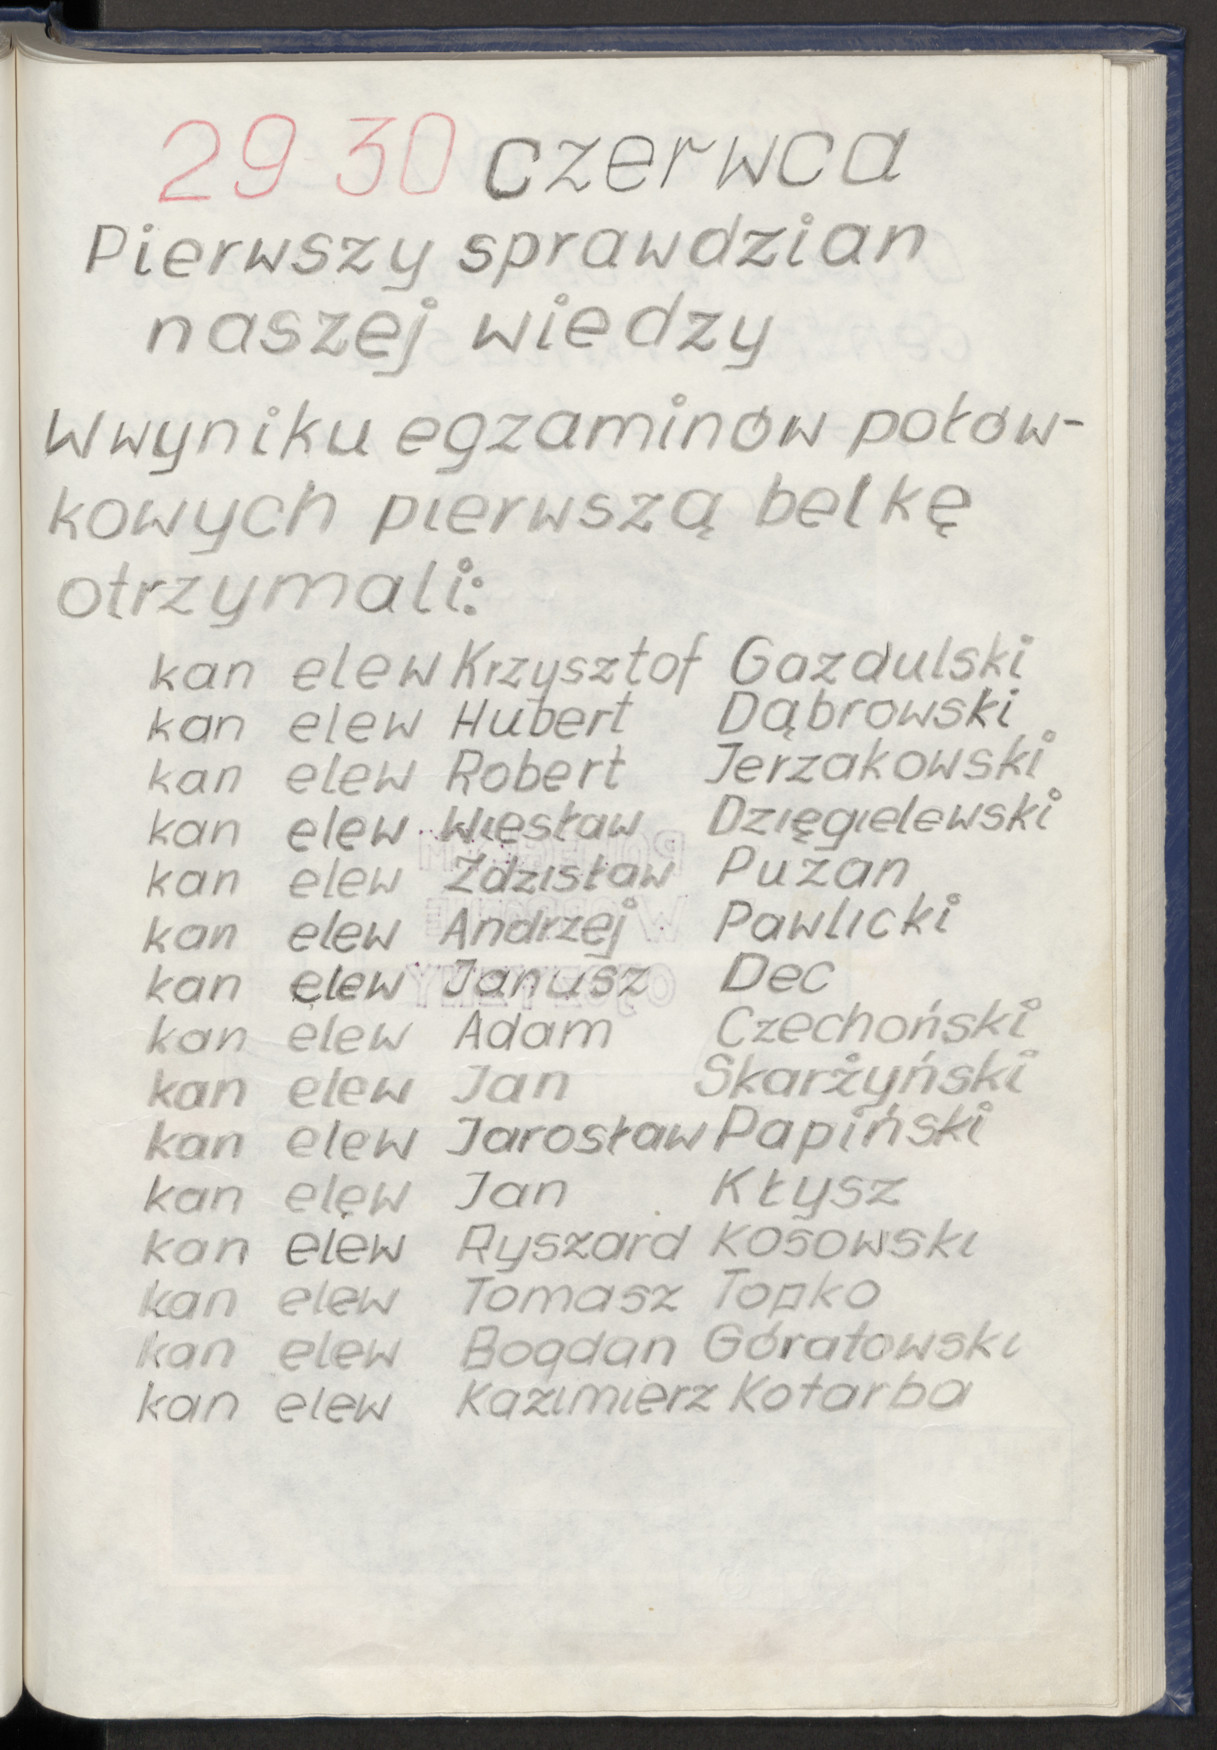 29 30 czerwca
Pierwszy sprawdzian
naszej wiedzy
W wyniku egzaminów połów-
kowych pierwszą belkę
otrzymali:
kan elew Krzysztof Gazdulski
kan elew Hubert Dąbrowski
kan elew Robert Jerzakowski
kan elew Wiesław Dzięgielewski
kan elew Zdzisław Puzan
kan elew Andrzej Pawlicki
kan elew Janusz Dec
kan elew Adam Czechoński
kan elew Jan Skarżyński
kan elew Jarosław Papiński
kan elew Jan Kłysz
kan elew Ryszard Kosowski
kan elew Tomasz Topko
kan elew Bogdan Górałowski
kan elew Kazimierz Kotarba